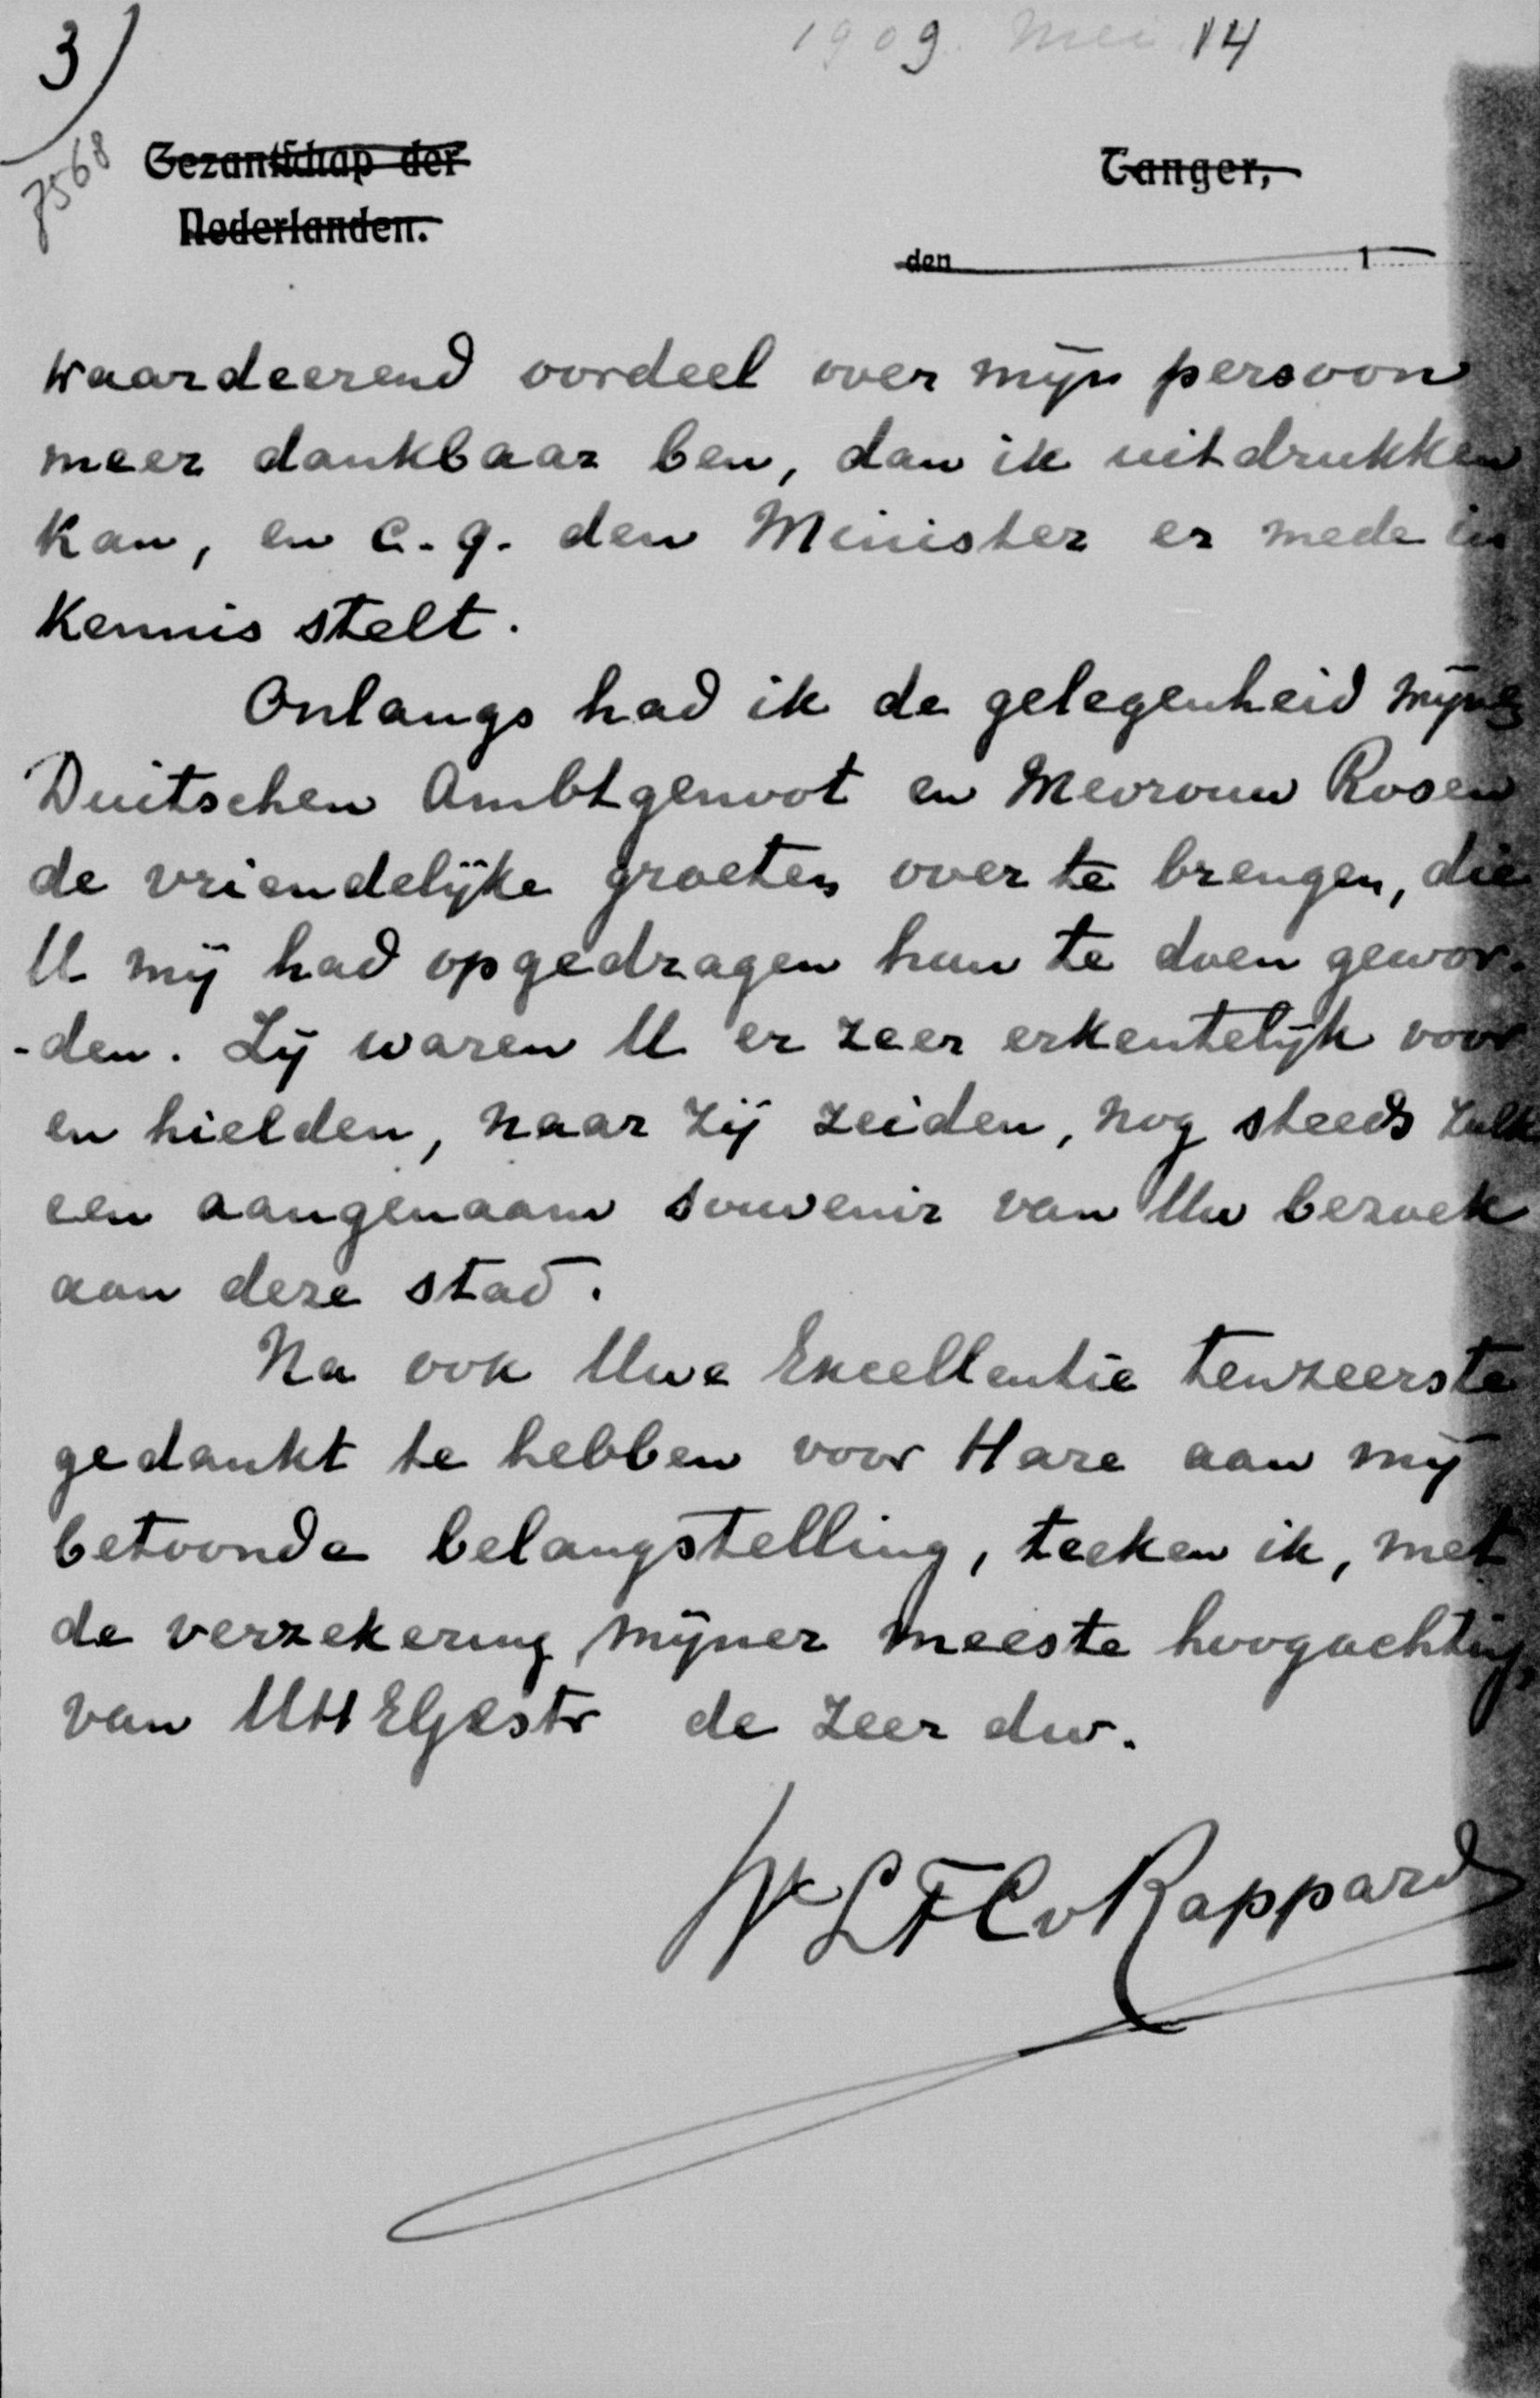 3)
1909. Mei 14
7568
Gezantschap der
Nederlanden.
Tanger,
den 1
waardeerend oordeel over mijn persoon
meer dankbaar ben, dan ik uitdrukken
kan, en c.q. den Minister er mede in
kennis stelt.
Onlangs had ik de gelegenheid mijnen
Duitschen Ambtgenoot en Mevrouw Rosen
de vriendelijke groeten over te brengen, die
U mij had opgedragen hun te doen gewor-
-den. Zij waren U er zeer erkentelijk voor
en hielden, naar zij zeiden, nog steeds zulk
een aangenaam souvenir van Uw bezoek
aan deze stad.
Na ook Uwe Excellentie tenzeerste
gedankt te hebben voor Hare aan mij
betoonde belangstelling, teeken ik, met
de verzekering mijner meeste hoogachting,
van UHEGestr de zeer dw.
W L F C v Rappard